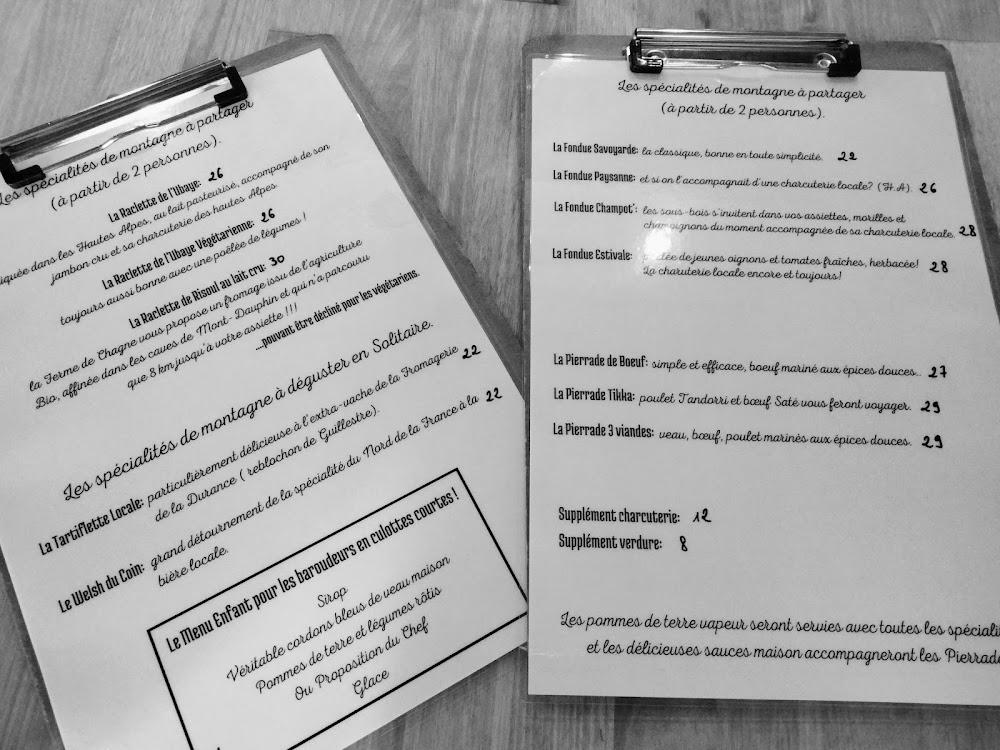 Les spécialités de montagne à partager
(à partir de 2 personnes).
La Raclette de l'Ubaye: 26
iquée dans les Hautes Alpes, au lait pasteurisé, accompagné de son
jambon cru et sa charcuterie des hautes Alpes
La Raclette de l'Ubaye Végétarienne: 26
toujours aussi bonne avec une poêlée de légumes !
La Raclette de Risoul au lait cru: 30
la Ferme de Chagne vous propose un fromage issu de l'agriculture
Bio, affinée dans les caves de Mont-Dauphin et qui n'a parcouru
que 8 km jusqu'à votre assiette !!!
...pouvant être décliné pour les végétariens.
Les spécialités de montagne à déguster en Solitaire.
La Tartiflette Locale: particulièrement délicieuse à l'extra-vache de la Fromagerie 22
de la Durance ( reblochon de Guillestre).
Le Welsh du Coin: grand détournement de la spécialité du Nord de la France à la 22
bière locale.
Le Menu Enfant pour les baroudeurs en culottes courtes !
Sirop
Véritable cordons bleus de veau maison
Pommes de terre et légumes rôtis
Ou Proposition du Chef
Glace
Les spécialités de montagne à partager
(à partir de 2 personnes).
La Fondue Savoyarde: la classique, bonne en toute simplicité. 22
La Fondue Paysanne: et si on l'accompagnait d'une charcuterie locale? (H.A). 26
La Fondue Champot': les sous-bois s'invitent dans vos assiettes, morilles et
champignons du moment accompagnée de sa charcuterie locale. 28
La Fondue Estivale: de jeunes oignons et tomates fraîches, herbacée! 28
La charuterie locale encore et toujours!
La Pierrade de Boeuf: simple et efficace, boeuf mariné aux épices douces.. 27
La Pierrade Tikka: poulet Tandorri et bœuf Saté vous feront voyager. 29
La Pierrade 3 viandes: veau, bœuf, poulet marinés aux épices douces. 29
Supplément charcuterie: 12
Supplément verdure: 8
Les pommes de terre vapeur seront servies avec toutes les spécialit
et les délicieuses sauces maison accompagneront les Pierrade